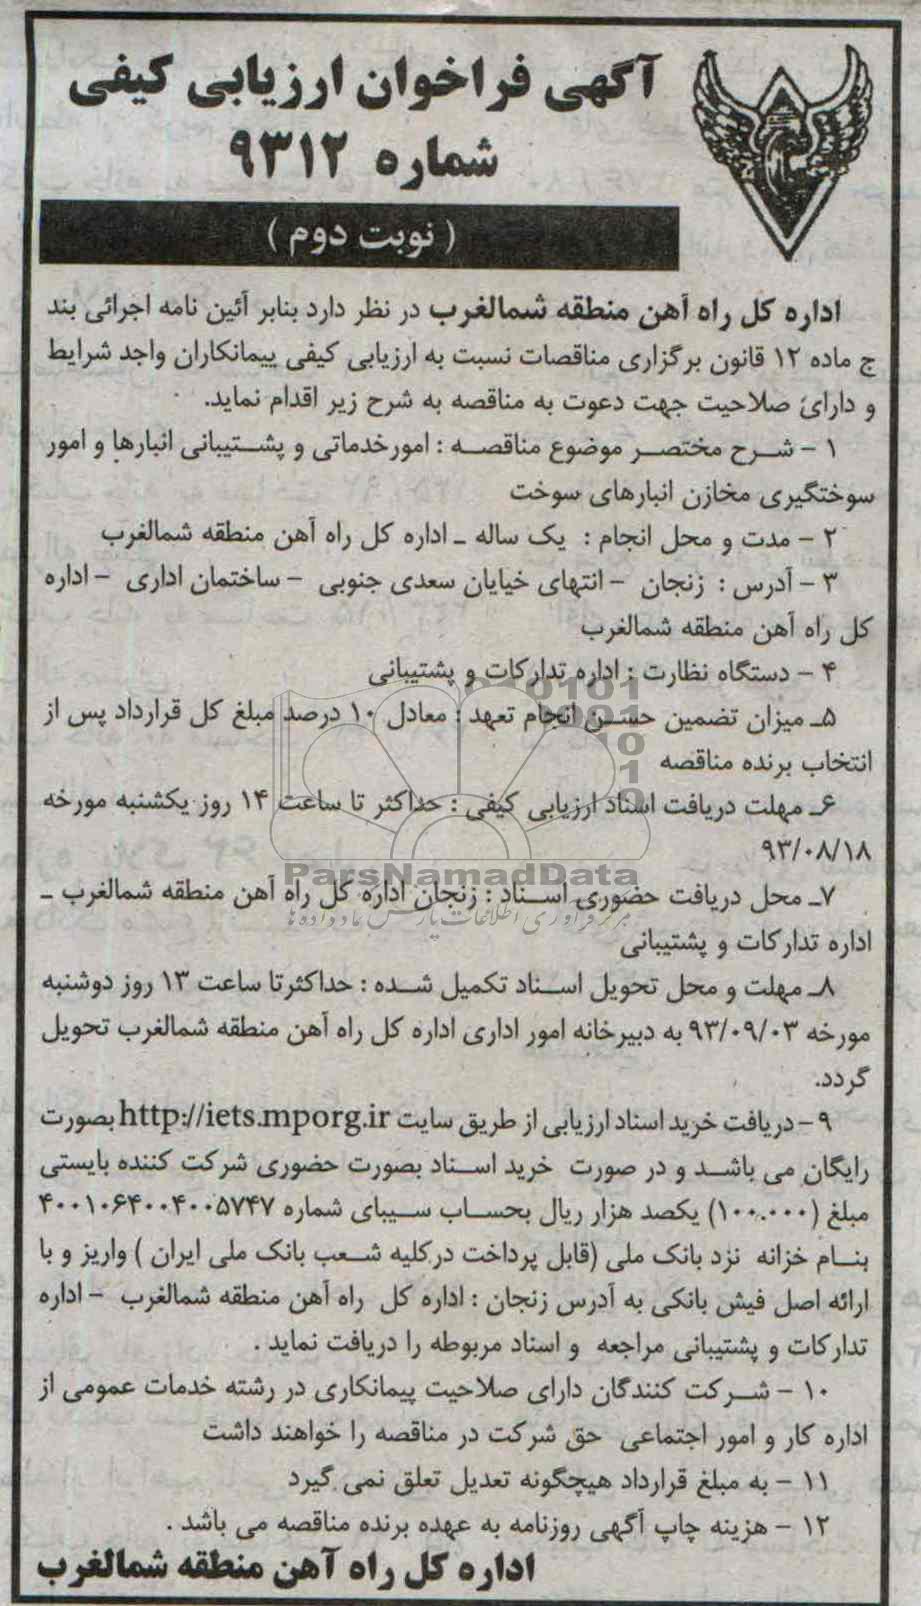 آگهی فراخوان ارزیابی کیفی
شماره ۹۳۱۲
( نوبت دوم )
اداره کل راه آهن منطقه شمالغرب در نظر دارد بنابر آئین نامه اجرائی بند
ج ماده ۱۲ قانون برگزاری مناقصات نسبت به ارزیابی کیفی پیمانکاران واجد شرایط
و دارای صلاحیت جهت دعوت به مناقصه به شرح زیر اقدام نماید.
۱ – شرح مختصر موضوع مناقصه : امورخدماتی و پشتیبانی انبارها و امور
سوختگیری مخازن انبارهای سوخت
۲ – مدت و محل انجام : یک ساله – اداره کل راه آهن منطقه شمالغرب
۳ – آدرس : زنجان – انتهای خیابان سعدی جنوبی – ساختمان اداری – اداره
کل راه آهن منطقه شمالغرب
۴ – دستگاه نظارت : اداره تدارکات و پشتیبانی
۵ـ میزان تضمین حسن انجام تعهد : معادل ۱۰ درصد مبلغ کل قرارداد پس از
انتخاب برنده مناقصه
۶ـ مهلت دریافت اسناد ارزیابی کیفی : حداکثر تا ساعت ۱۴ روز یکشنبه مورخه
۹۳/۰۸/۱۸
ParsNamadData
۷ـ محل دریافت حضوری اسناد : زنجان اداره کل راه آهن منطقه شمالغرب ـ
مرکز فرآوری اطلاعات پارس نماد داده ها
اداره تدارکات و پشتیبانی
۸ـ مهلت و محل تحویل اسناد تکمیل شده : حداکثرتا ساعت ۱۳ روز دوشنبه
مورخه ۹۳/۰۹/۰۳ به دبیرخانه امور اداری اداره کل راه آهن منطقه شمالغرب تحویل
گردد.
۹ – دریافت خرید اسناد ارزیابی از طریق سایت http://iets.mporg.ir بصورت
رایگان می باشد و در صورت خرید اسناد بصورت حضوری شرکت کننده بایستی
مبلغ (۱۰۰.۰۰۰) یکصد هزار ریال بحساب سیبای شماره ۴۰۰۱۰۶۴۰۰۴۰۰۵۷۴۷
بنام خزانه نزد بانک ملی (قابل پرداخت درکلیه شعب بانک ملی ایران ) واریز و با
ارائه اصل فیش بانکی به آدرس زنجان : اداره کل راه آهن منطقه شمالغرب – اداره
تدارکات و پشتیبانی مراجعه و اسناد مربوطه را دریافت نماید .
۱۰ – شرکت کنندگان دارای صلاحیت پیمانکاری در رشته خدمات عمومی از
اداره کار و امور اجتماعی حق شرکت در مناقصه را خواهند داشت
۱۱ – به مبلغ قرارداد هیچگونه تعدیل تعلق نمی گیرد
۱۲ – هزینه چاپ آگهی روزنامه به عهده برنده مناقصه می باشد .
اداره کل راه آهن منطقه شمالغرب